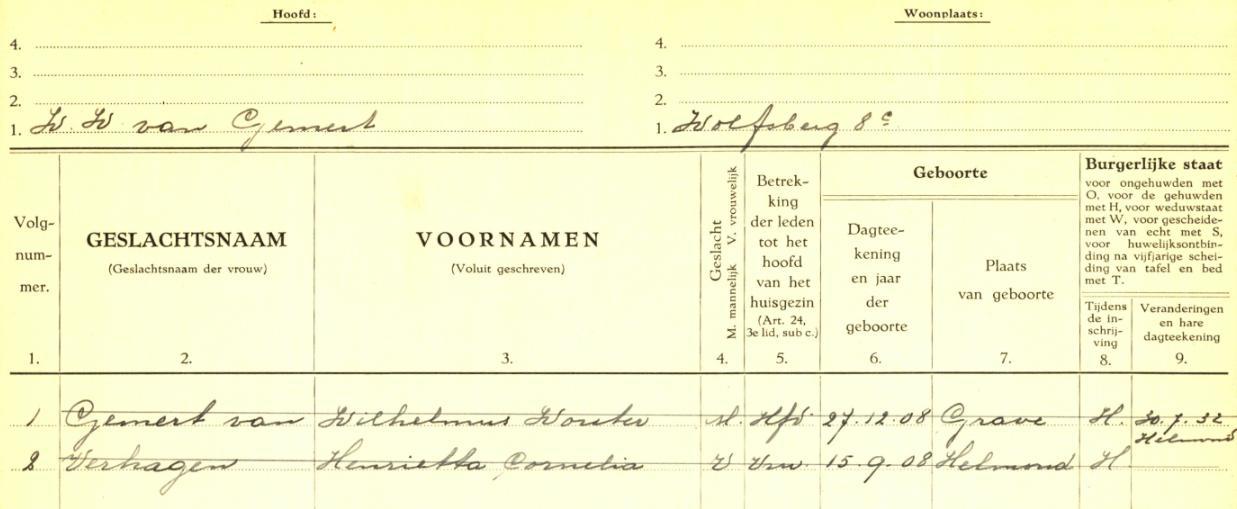 Hoofd:
Woonplaats:
4.
4.
3.
3.
2.
2.
1. W. W van Gemert
1. Wolfsberg 8c
Volg-
num-
mer.
1.
GESLACHTSNAAM
(Geslachtsnaam der vrouw)
2.
VOORNAMEN
(Voluit geschreven)
3.
Geslacht
M. mannelijk V. vrouwelijk
4.
Betrek-
king
der leden
tot het
hoofd
van het
huisgezin
(Art. 24,
3e lid, sub c.)
5.
Geboorte
Dagtee-
kening
en jaar
der
geboorte
6.
Plaats
van geboorte
7.
Burgerlijke staat
voor ongehuwden met
O, voor de gehuwden
met H, voor weduwstaat
met W, voor gescheide-
nen van echt met S,
voor huwelijksontbin-
ding na vijfjarige schei-
ding van tafel en bed
met T.
Tijdens
de in-
schrij-
ving
8.
Veranderingen
en hare
dagteekening
9.
1 Gemert van Wilhelmus Wouter M. Hfd 27.12.08 Grave H. 30.7.32
Helmond
2 Verhagen Henrietta Cornelia V Vrw. 15.9.08 Helmond H